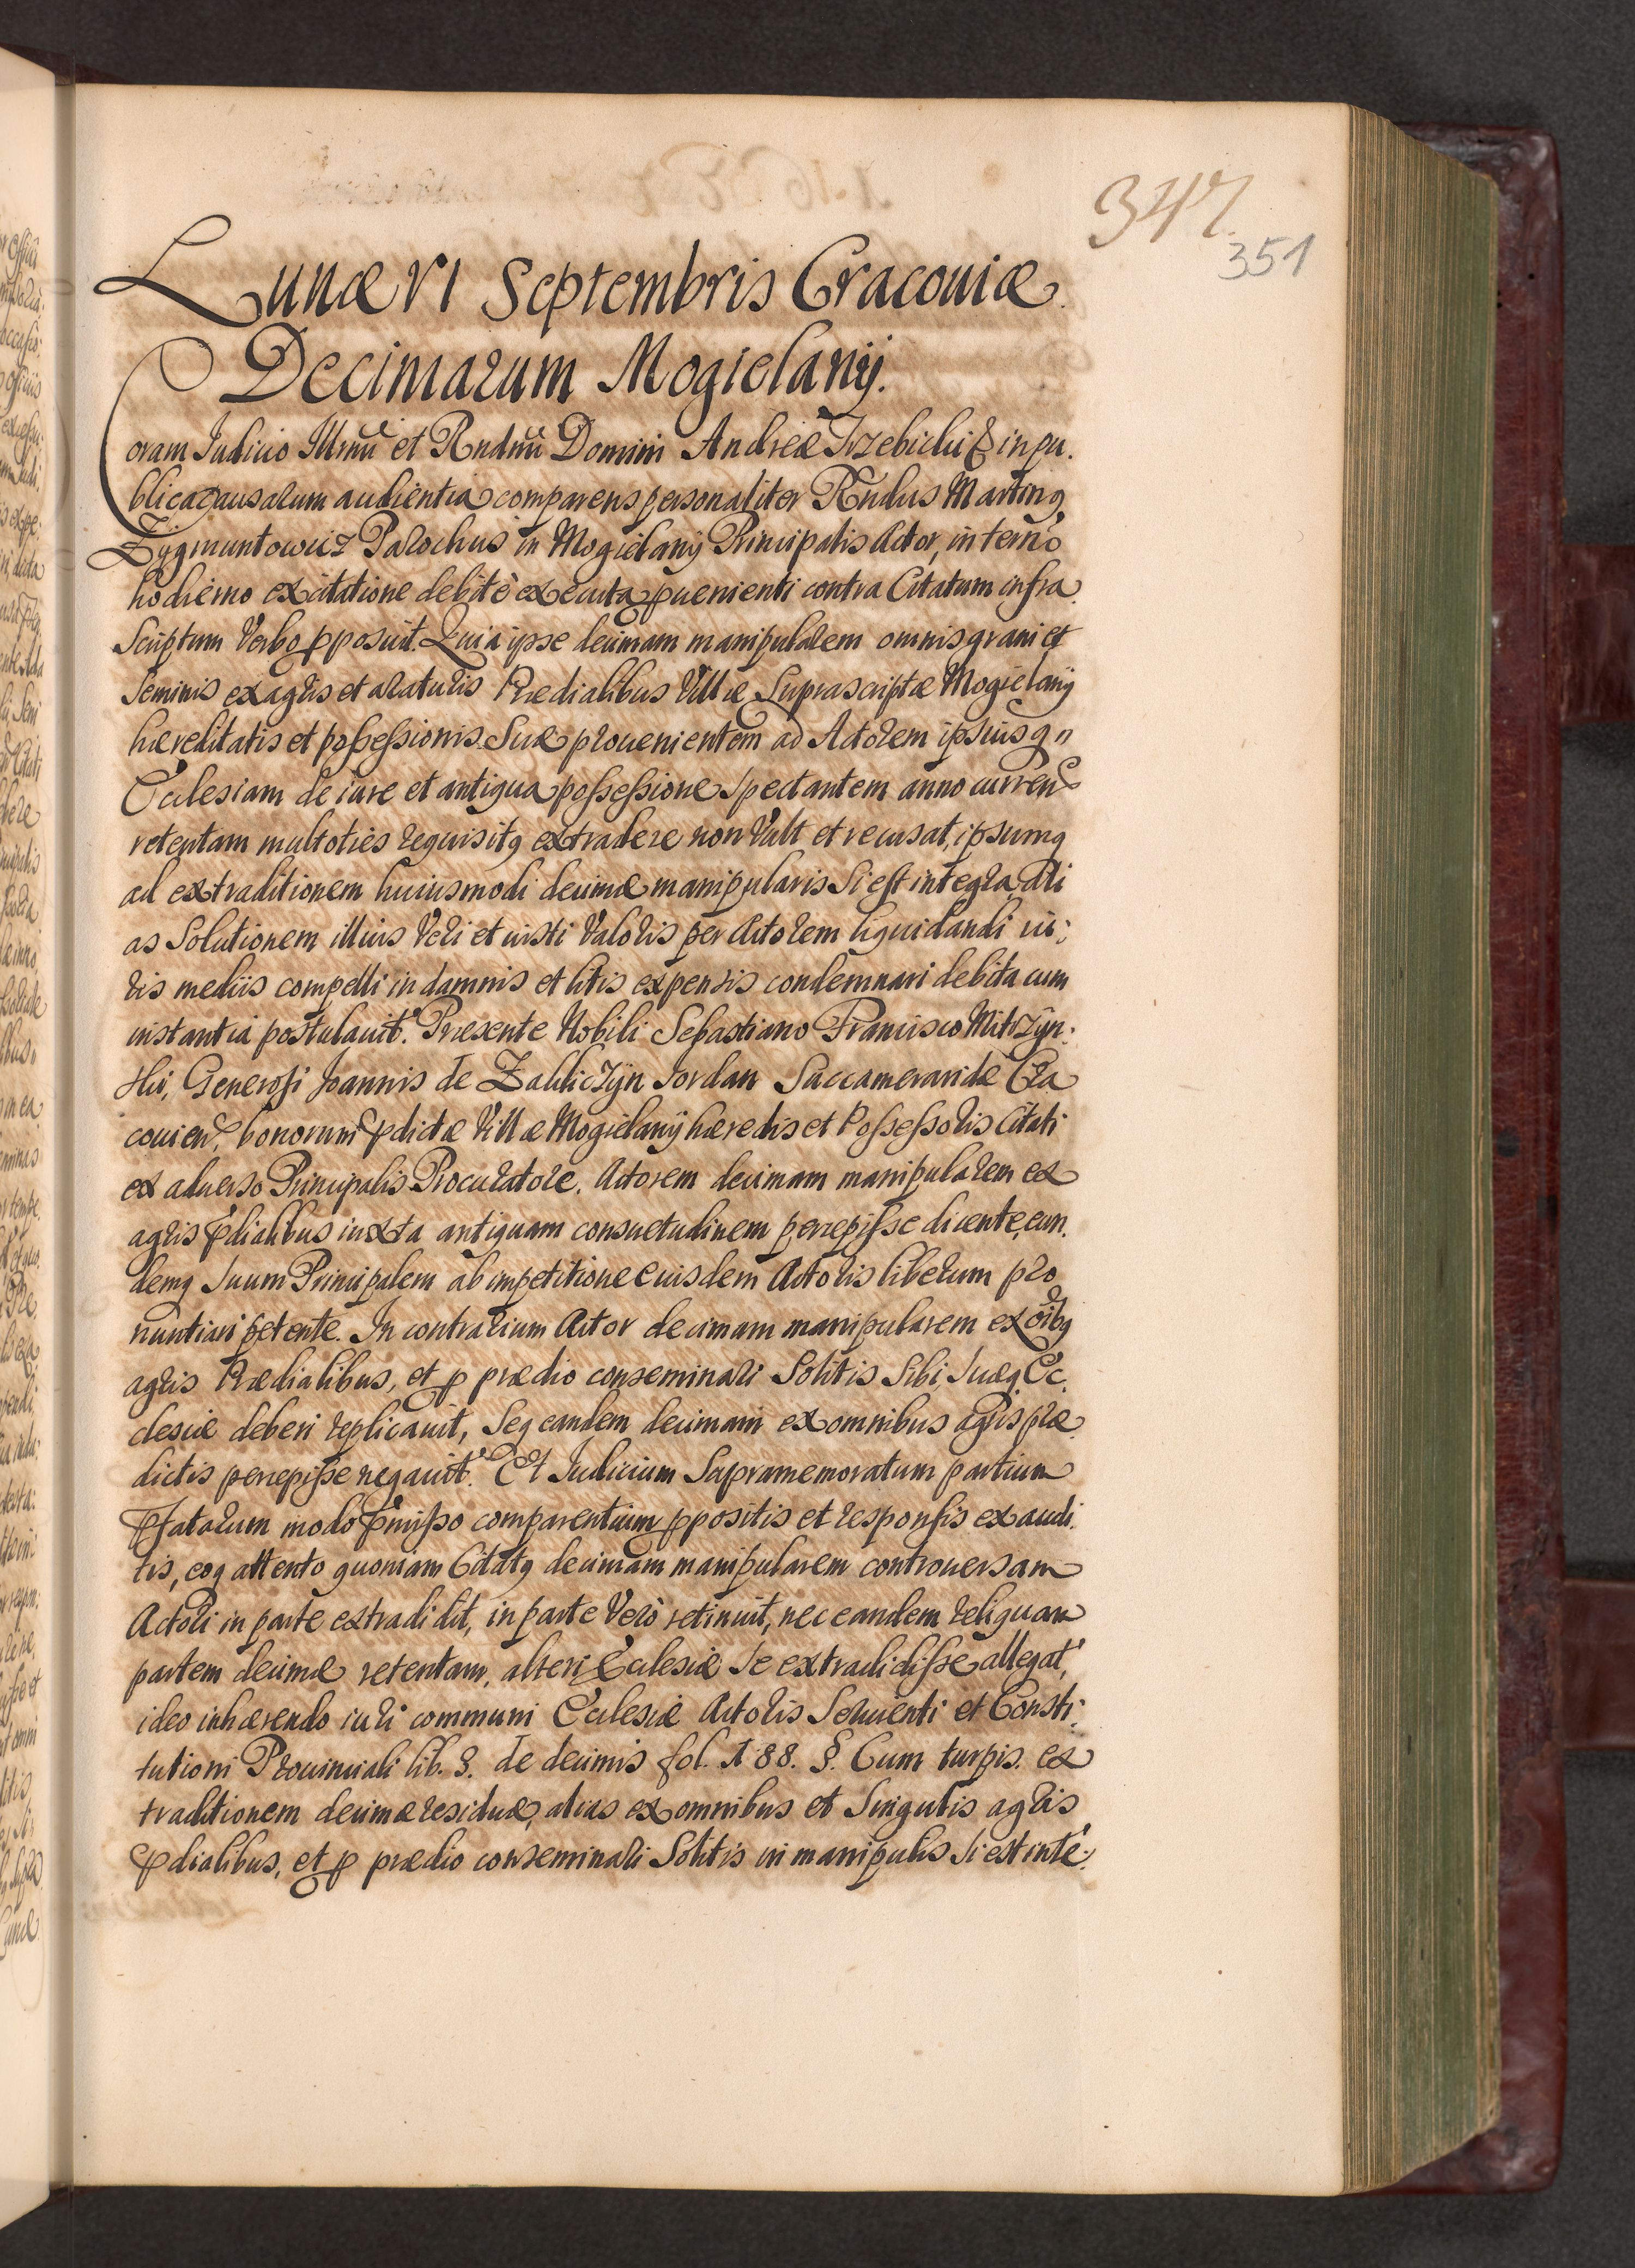 347.
351
Lunæ VI Septembris Cracouiæ.
Decimarum Mogielanÿ.
Coram Iudicio Illrmi et Rndmi Domini Andreæ Trzebicki & in pu.
blica causarum audientia comparens personaliter Rndus Martinq
Zygmuntowicz Parochus in Mogielanÿ Principalis Actor, in termo
hodierno ex citatione debitè executa puenienti contra Citatum infra
Scriptum Verbo pposuit. Quia ipse decimam manipularem omnis grani et
Seminis ex agris et araturis Prædialibus Villæ Suprascriptæ Mogielanÿ
hæreditatis et possessionis Suæ prouenientem ad Actorem ipsiusq"
Ecclesiam de iure et antiqua possessione Spectantem anno curren
retentam multoties requisitq extradere non Vult et recusat, ipsumq
ad extraditionem huiusmodi decimæ manipularis Si est integra ali
as Solutionem illius Veri et iusti Valoris per Actorem liquidandi iu:
ris mediis compelli in damnis et litis expensis condemnari debita cum
instantia postulauit. Præsente Nobili Sebastiano Francisco Mitrzÿn:
ski, Generosi Joannis de Zakliczÿn Jordan Succameraride Cra
couien, bonorum pdictæ Villæ Mogielanÿ hæredis et Possessoris Citati
ex aduerso Principalis Procuratore. Actorem decimam manipularem ex
agris pdialibus iuxta antiquam consuetudinem percepisse dicente, eun.
demq Suum Principalem ab impetitione euisdem Actoris liberum pro
nuntiari petente. In contrarium Actor decimam manipularem ex oibq
agris Prædialibus, et p prædio conseminari Solitis Sibi, Suæq. Ec.
clesiæ deberi replicauit, Seq eandem decimam ex omnibus agris præ
dictis percepisse negauit. Et Iudicium Supramemoratum partium
pfatarum modo pmisso comparentium ppositis et responsis exaudi.
tis, eoq attento quoniam Citatq decimam manipularem controuersam
Actori in parte extradidit, in parte Verò retinuit, nec eandem reliquam
partem decimæ retentam, alteri Ecclesiæ Se extradidisse allegat,
ideo inhærendo iuri communi Ecclesiæ Actoris Seruienti et Consti:
tutioni Prouinciali lib. 3. de decimis fol. 188. §. Cum turpis. ex
traditionem decimæ residuæ, alias ex omnibus et Singulis agris
pdialibus, et p prædio conseminari Solitis in manipulis Si est inte: